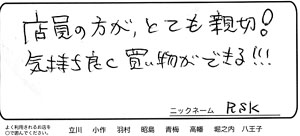 店員の方が、とても親切!
気持ち良く買い物ができる!!!
ニックネーム RSK
よく利用されるお店を
○で囲んでください。
立川 小作 羽村 昭島 青梅 高幡 堀之内 八王子